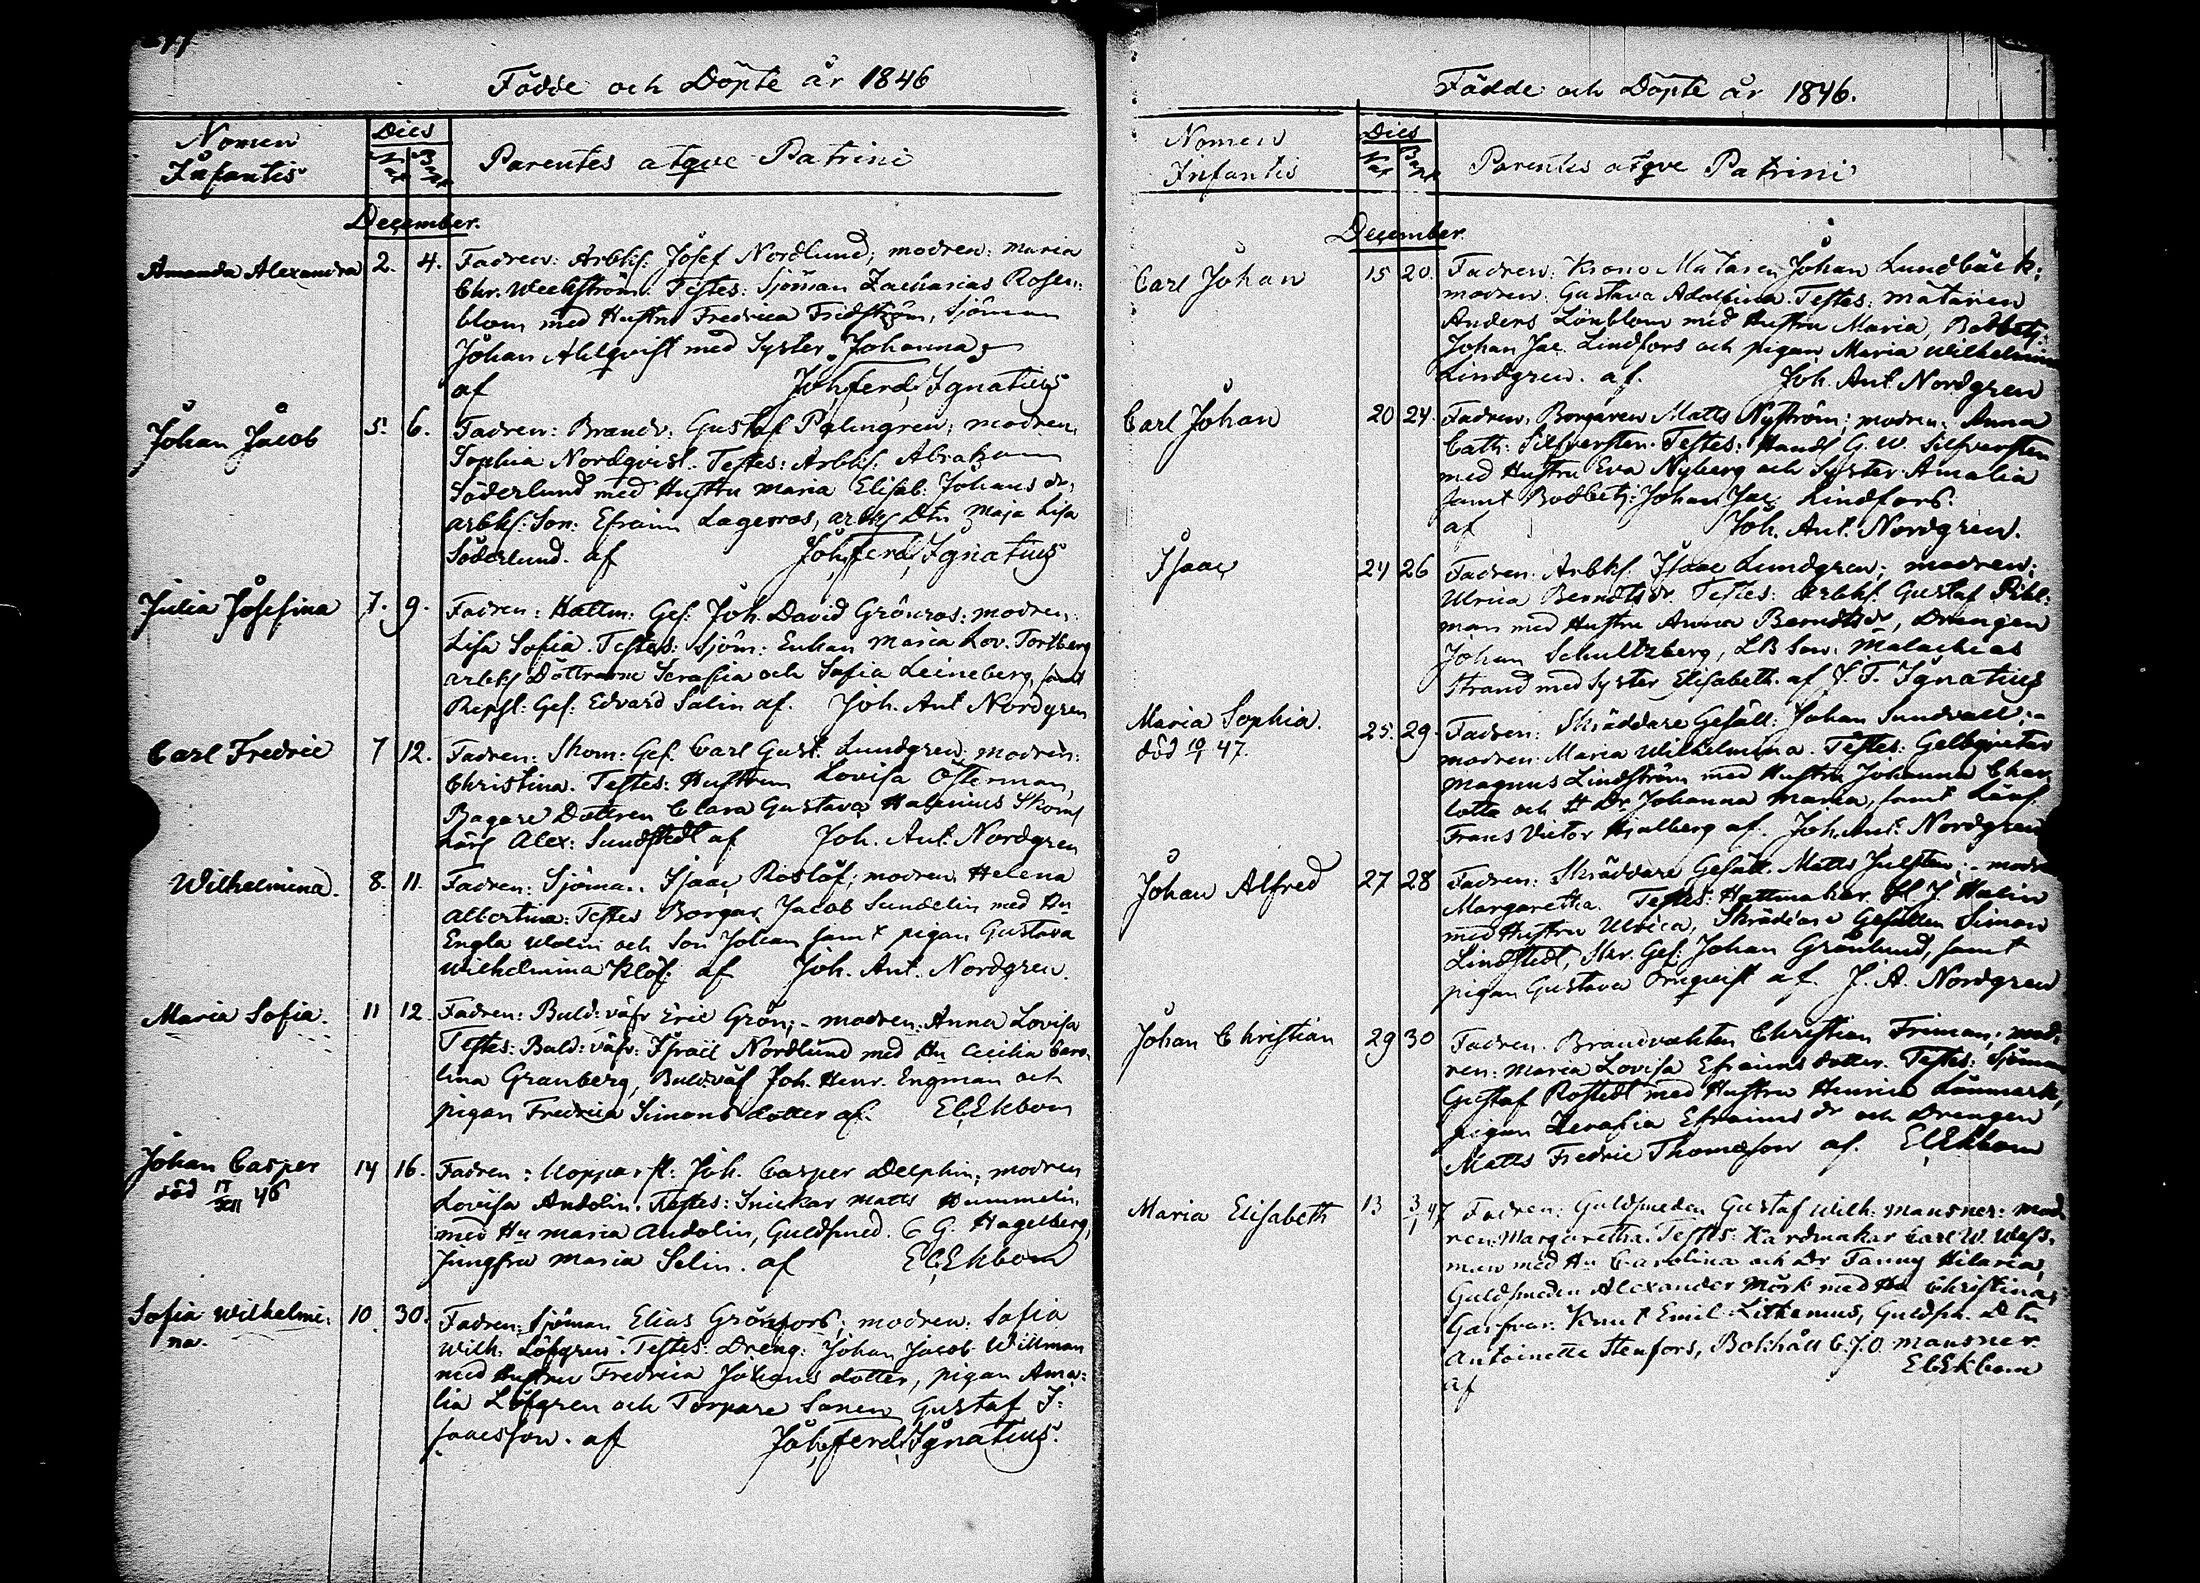 Födde och Döpte år 1846
Nomen
Infantis
Dies
Nat
Bapt
Parentes atqve Patrini
December.
Amanda Alexandra 2. 4. Fadren: Arbks. Josef Nordlund; modren: Maria
Chr. Weckström. Testes: Sjöman Zacharias Rosen-
blom med Hustru Fredrica Fridström, Sjöman
Johan Ahlqvist med Syster Johanna
af Joh. Ferd. Ignatius
Johan Jacob 5. 6. Fadren: Brandv. Gustaf Palmgren; modren.
Sophia Nordqvist. Testes: Arbks. Abraham
Söderlund med Hustru Maria Elisab: Johans dr,
arbks: Son: Efraim Lagerroos, arbks Dtr Maja Lisa
Söderlund. af Joh. Ferd. Ignatius
Julia Josefina 7. 9. Fadren: Hattm: Ges. Joh. David Grönroos: modren:
Lisa Sofia. Testes: Sjöm: Enkan Maria Lov. Fortberg
arbks Döttrarne Serafia och Sofia Leineberg, samt
Repsl: Ges: Edvard Salin af. Joh. Ant Nordgren
Carl Fredric 7 12. Fadren: Skom: Ges. Carl Gust. Lundgren modren:
Christina. Testes: Hustrun Lovisa Österman,
Bagare Dottren Clara Gustava Halenius Skom
Lärl Alex: Sundstedt af Joh. Ant. Nordgren
Wilhelmina. 8. 11. Fadren: Sjöma. Isaac Roslöf; modren Helena
Albertina: Testes Borgar. Jacob Sundelin med Hu
Engla Molin och Son Johan samt pigan Gustava
Wilhelmina Klöf: af Joh. Ant. Nordgren.
Maria Sofia. 11 12. Fadren: Buld: väfv Eric Grön; - modren: Anna Lovisa
Testes: Buld: väfv: Israel Nordlund med Hu Cecilia Caro-
lina Granberg, Buld: väf Joh. Henr. Engman och
pigan Fredrica Simons dotter af. El. Ekbom
Johan Casper 14 16. Fadren: Kopparsl. Joh. Casper Delphin; modren
död 17/XII 46 Lovisa Andolin. Testes: Snickar Matts Hummelin
med Hu Maria Andolin, Guldsmed. C G. Hagelberg,
Jungfru Maria Selin. af El. Ekbom
Sofia Wilhelmi: 10. 30. Fadren: Sjöman Elias Grönfors; modren: Sofia
na. Wilh. Löfgren. Testes: Dreng: Johan Jacob Willman
med Hustru Fredrica Johans dotter, pigan Ama-
lia Löfgren och Torpare Sonen Gustaf I-
saacsson. af Joh. Ferd. Ignatius.
Födde och Döpte år 1846.
Nomen
Infantis
Dies
Nat
Bapt
Parentes atqve Patrini
December
Carl Johan 15 20. Fadren: Krono Mätaren Johan Lundbäck;
modren: Gustava Adolfina. Testes: Mätaren
Anders Lönblom med Hustru Maria, Bodbetj:
Johan Jac. Lindfors och pigan Maria Wilhelmina
Lindgren. af. Joh. Ant. Nordgren
Carl Johan 20 24. Fadren: Borgaren Matts Nyström; modren: Anna
Cath: Silfversten. Testes: Handl G. W. Silfversten
med Hustru Eva Nyberg och Syster Amalia
samt Bodbetj: Johan Jac Lindfors.
af Joh. Ant. Nordgren.
Isaac 24 26 Fadren. Arbks. Isaac Lundgren; modren:
Ulrica Berndtsdr. Testes: Arbks. Gustaf Pihl-
man med Hustru Anna Berndtsdr, Drengen
Johan Schultzberg, LB Son: Malachias
Strand med Syster Elisabeth. af J. F. Ignatius
Maria Sophia. 25. 29. Fadren: Skräddare Gesäll: Johan Sundvall; -
död 10/1 47. modren: Maria Wilhelmina. Testes: Gelbgjutar
Magnus Lindström med Hustru Johanna Char-
lotta och Dr Johanna Maria, samt Lärl.
Frans Victor Hjulberg af. Joh. Ant. Nordgren
Johan Alfred 27 28 Fadren: Skräddare Gesäll. Matts Julsten; - modren
Margaretha. Testes: Hattmakar J. Halin
med Hustru Ulrica, Skräddare Gesällen Simon
Lindstedt, Skr. Ges: Johan Grönlund, samt
pigan Gustava Ornqvist af. J. A. Nordgren
Johan Christian 29 30 Fadren. Brandvakten Christian Friman; mod-
ren: Maria Lovisa Efraims dotter. Testes: Sjöman
Gustaf Rostedt med Hustru Henrica Lönmark,
pigan Serafia Efraims dr och Drengen
Matts Fredric Thomasson af. El. Ekbom
Maria Elisabeth 13 3/1 47 Fadren: Guldsmeden Gustaf Wilh: Mansner: mod-
ren: Margaretha. Testes: Kardmakar Carl W. Wess-
man med Hu Carolina och Dr Fanny Hilaria,
Guldsmeden Alexander Mörk med Hu Christina,
Garfvar. Knut Emil Lithenius, Guldsm. Dtr
Antoinette Stenfors, Bokhåll C. J. O. Mansner.
af El. Ekbom